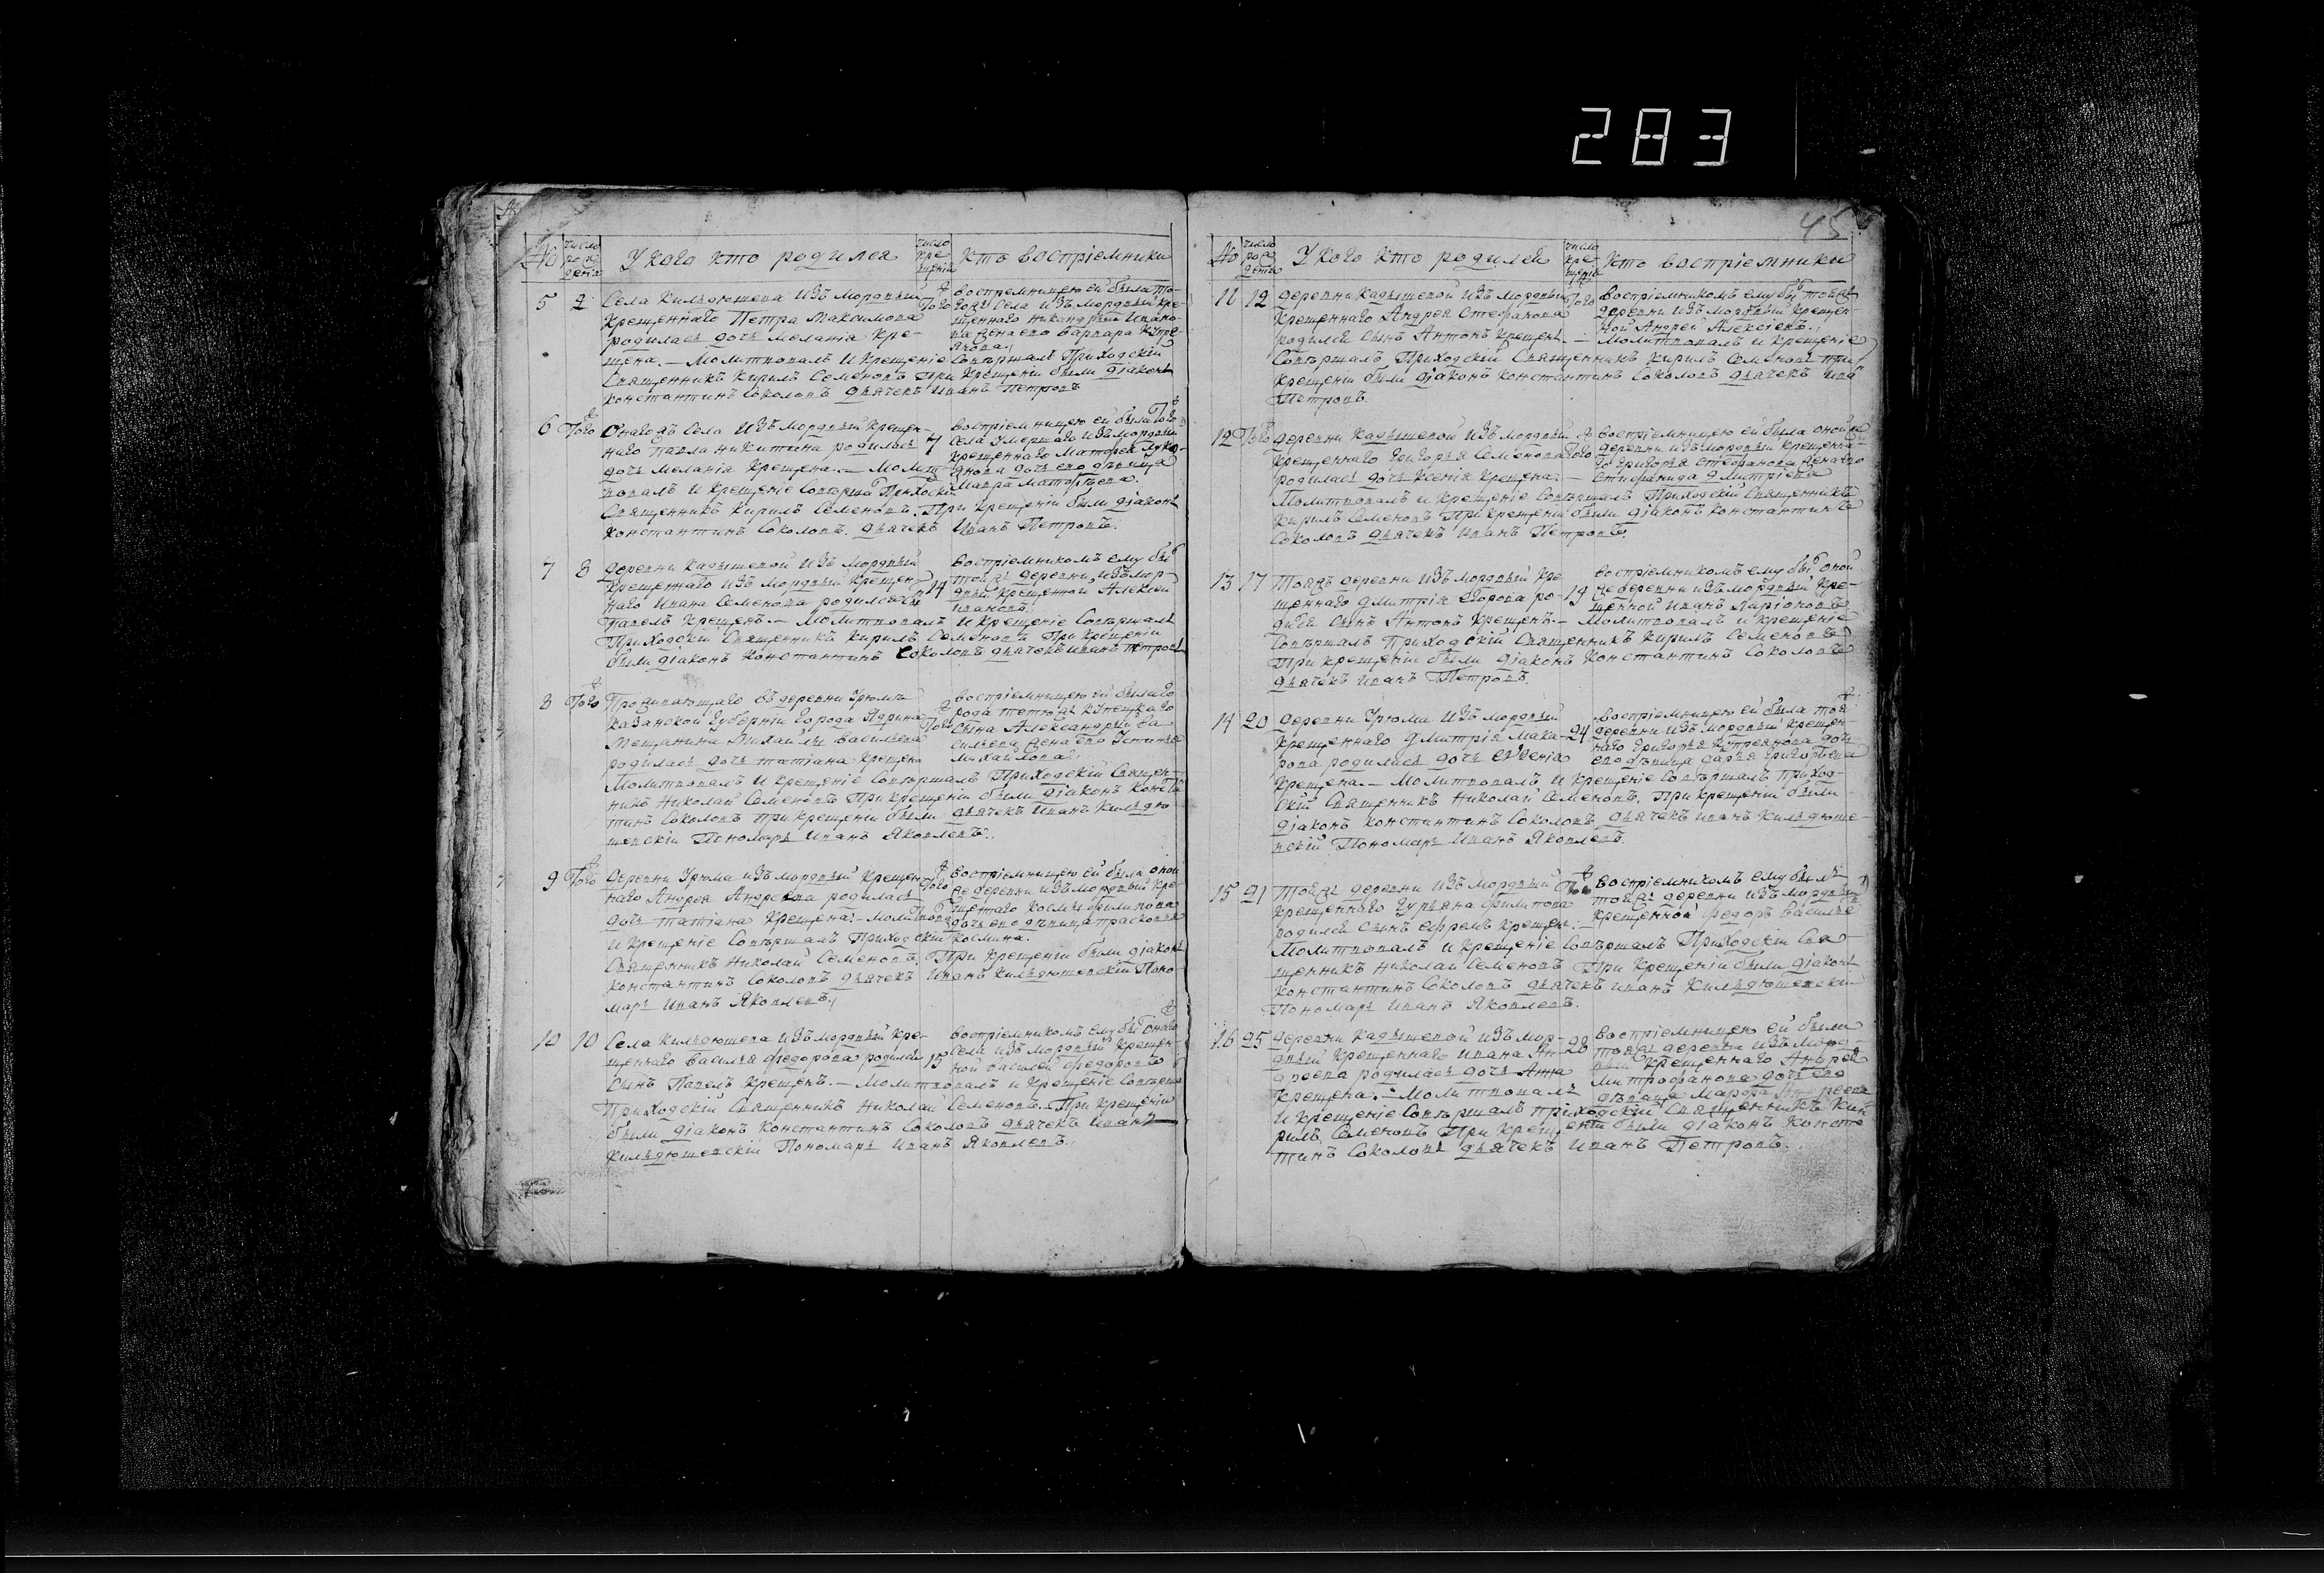 283
45
№ число рождения У кого кто родился число крещенія Кто воспріемники
5 2 Села Кильдюшева изъ мордвы
крещеннаго Петра Максимова
родилась дочь Меланія кре-
щена. — Молитвовалъ и крещеніе совершалъ Приходскій
Священникъ Кирилъ Семеновъ При крещеніи были діаконъ
Константинъ Соколовъ дьячекъ Иванъ Петровъ
Того ж воспріемницею ей была то-
гожъ села изъ мордвы кре-
щеннаго Иванова
жена ево Варвара
6 Того ж Онагожъ села изъ мордвы крещен-
наго Павла Никитина родилась
дочь Меланія крещена. — Молит-
вовалъ и крещеніе совершалъ Приходскій
Священникъ Кирилъ Семеновъ. При крещеніи были діаконъ
Константинъ Соколовъ. дьячекъ Иванъ Петровъ.
7 воспріемницею ей была тогожъ
села умершаго изъ мордвы
крещеннаго Матфея
дочь ево дѣвица
Мавра Матфѣева.
7 8 деревни Кадышевой изъ мордвы
крещеннаго изъ мордвы крещен-
наго Ивана Семенова родился сынъ
Павелъ крещенъ. — Молитвовалъ и крещеніе совершалъ
Приходскій Священникъ Кирилъ Семеновъ При крещеніи
были діаконъ Константинъ Соколовъ дьячекъ Иванъ Петровъ
14 воспріемникомъ ему былъ
тойжъ деревни изъ мор-
двы крещеной Алексѣй
Ивановъ.
8 Того ж Проживающаго въ деревни Урюмъ
Казанской губерніи города Ядрина
мещанина Михайлы Васильева
родилась дочь Татіана крещена
Молитвовалъ и крещеніе совершалъ Приходскій Священ-
никъ Николай Семеновъ При крещеніи были діаконъ Конста
тинъ Соколовъ при крещеніи были дьячекъ Иванъ Кильдю-
шевскій Пономарь Иванъ Яковлевъ.
Того ж воспріемницею ей была го-
рода Тетюшъ купецкаго
сына Александры Ва-
сильева жена ево Устинья
Михайлова.
9 Того ж деревни Урюма изъ мордвы крещен-
наго Андрея Андреева родилась
дочь Татіана крещена. — Молитвовалъ
и крещеніе совершалъ Приходскій
Священникъ Николай Семеновъ. При крещеніи были діаконъ
Константинъ Соколовъ дьячекъ Иванъ Кильдюшевскій Поно-
марь Иванъ Яковлевъ.
Того ж воспріемницею ей была оной
же деревни изъ мордвы кре-
щенаго Космы Филипова
дочь ево дѣвица Прасковья
Космина.
10 10 Села Кильдюшева изъ мордвы кре-
щеннаго Василья Федорова родился
сынъ Павелъ крещенъ. — Молитвовалъ и крещеніе совершалъ
Приходскій Священникъ Николай Семеновъ. — При крещеніи
были діаконъ Константинъ Соколовъ дьячекъ Иванъ
Кильдюшевскій Пономарь Иванъ Яковлевъ.
15 воспріемникомъ ему былъ онагожъ
села изъ мордвы крещен-
ной Василей Федоровъ
№ число рождения У кого кто родился число крещенія Кто воспріемники
11 12 деревни Кадышевой изъ мордвы
крещеннаго Андрея Стефанова
родился сынъ Антонъ крещенъ. — Молитвовалъ и крещеніе
Совершалъ Приходскій Священникъ Кирилъ Семеновъ при
крещеніи были діаконъ Константинъ Соколовъ дьячекъ Иванъ
Петровъ.
Того ж воспріемникомъ ему былъ тойже
деревни изъ мордвы крещен-
ной Андрей Алексіевъ.
12 Того ж деревни Кадышевой изъ мордвы
крещеннаго Григорья Семенова
родилась дочь Ксенія крещена. —
Молитвовалъ и крещеніе совершалъ Приходскій Священникъ
Кирилъ Семеновъ При крещеніи были діаконъ Константинъ
Соколовъ дьячекъ Иванъ Петровъ.
Того ж воспріемницею ей была оной же
деревни изъ мордвы крещенна-
го Григорья Стефанова жена ево
Стефанида Дмитріева
13 17 Тоажъ деревни изъ мордвы кре-
щеннаго Дмитрія Егорова ро-
дился сынъ Антонъ крещенъ. — Молитвовалъ и крещеніе
Совершалъ Приходскій Священникъ Кирилъ Семеновъ
При крещеніи были діаконъ Константинъ Соколовъ
дьячекъ Иванъ Петровъ.
19 воспріемникомъ ему былъ оной
же деревни изъ мордвы кре-
щенной Иванъ Ларіоновъ
14 20 деревни Урюма изъ мордвы
крещеннаго Дмитрія Мака-
рова родилась дочь Евгенія
крещена. — Молитвовалъ и крещеніе совершалъ Приход-
скій Священникъ Николай Семеновъ. При крещеніи были
діаконъ Константинъ Соколовъ дьячекъ Иванъ Кильдюше-
вскій Пономарь Иванъ Яковлевъ.
24 воспріемницею ей была тойж
деревни изъ мордвы крещен-
наго Григорья дочь
ево дѣвица Дарья Григорьева
15 21 Тойжъ деревни изъ мордвы
крещеннаго Гурьяна Филипова
родился сынъ Ефремъ крещенъ. —
Молитвовалъ и крещеніе совершалъ Приходскій Свя-
щенникъ Николай Семеновъ При крещеніи были діаконъ
Константинъ Соколовъ дьячекъ Иванъ Кильдюшевскій
Пономарь Иванъ Яковлевъ.
Того ж воспріемникомъ ему былъ
тойжъ деревни изъ мордвы
крещенной Федоръ Васильевъ
16 25 деревни Кадышевой изъ мор-
двы крещеннаго Ивана Ан-
дреева родилась дочь Анна
крещена. — Молитвовалъ
и крещеніе совершалъ приходскій Священникъ Ки-
рилъ Семеновъ При крещеніи были діаконъ Конста
тинъ Соколовъ дьячекъ Иванъ Петровъ.
28 воспріемницею ей была
тойжъ деревни изъ морд-
вы крещеннаго Андрея
Митрофанова дочь ево
дѣвица Марфа Андреева